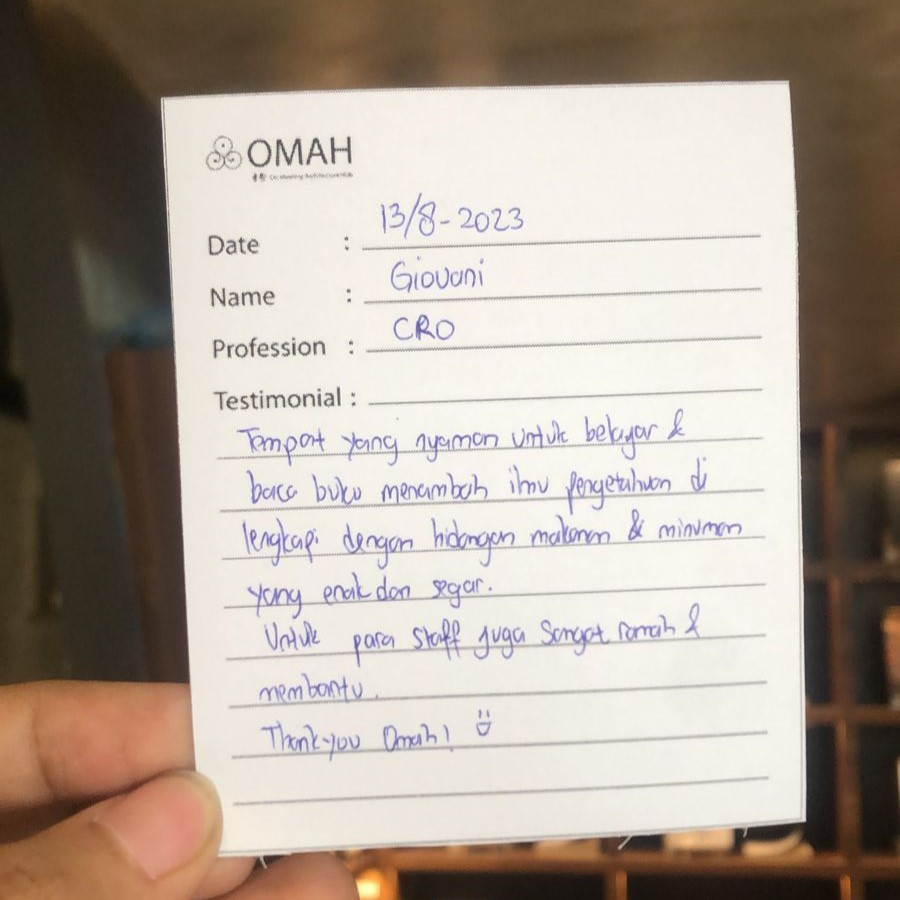 OMAH
Date : 13/8-2023
Name : Giovani
Profession : CRO
Testimonial :
Tempat yang nyaman untuk belajar &
baca buku menambah ilmu pengetahuan di
lengkapi dengan hidangan makanan & minuman
yang enak dan segar.
Untuk para staff juga sangat ramah &
membantu.
Thank you Omah!